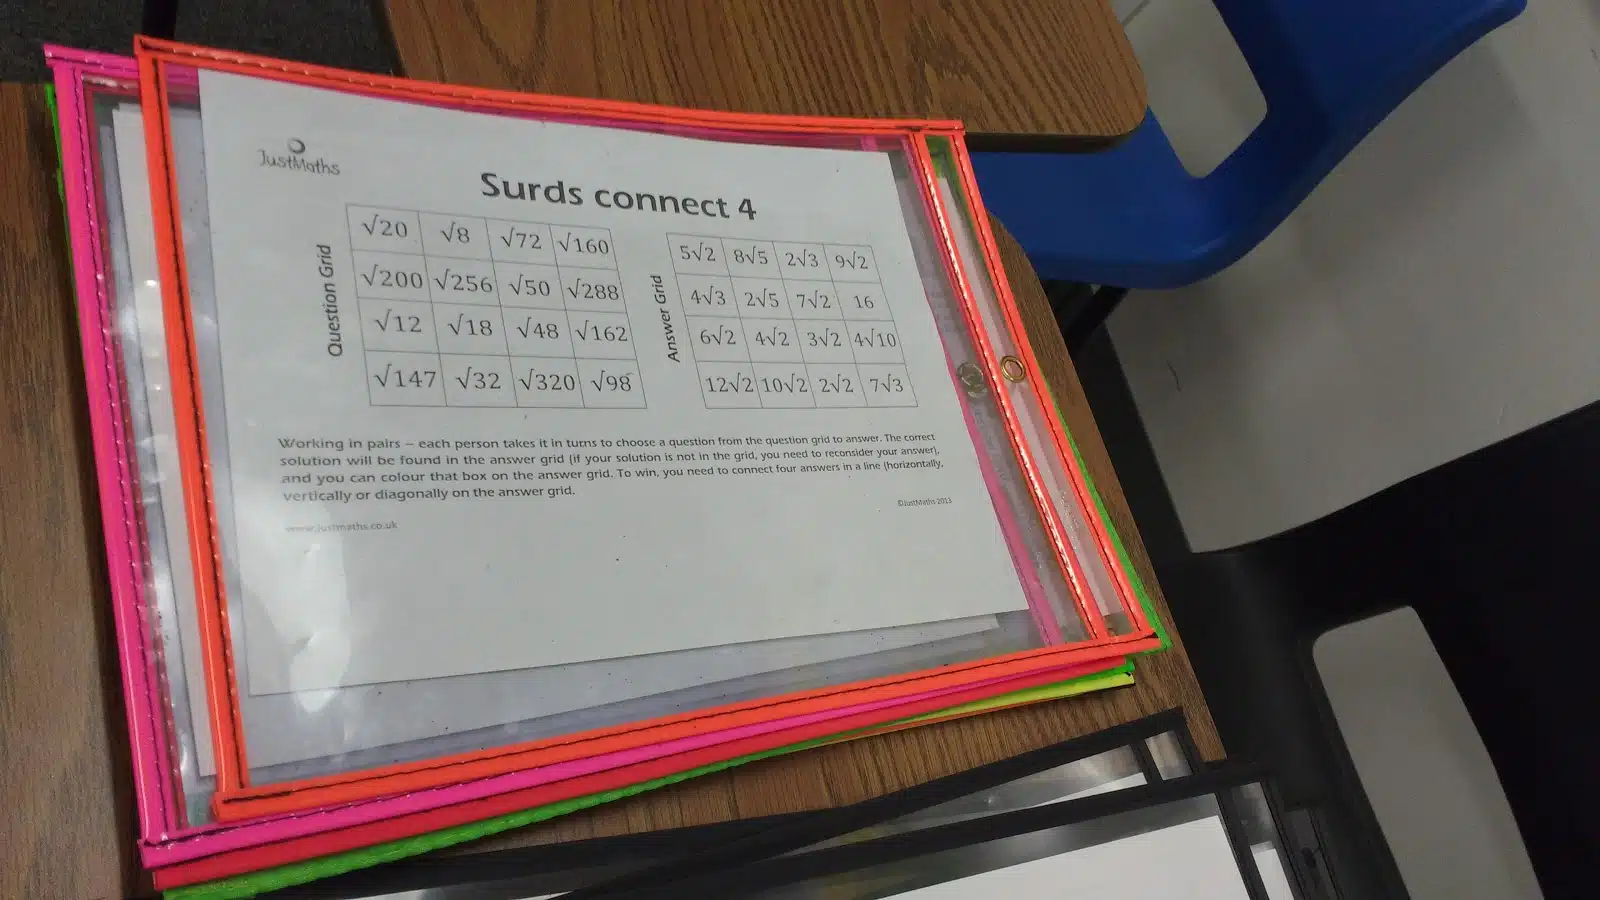 JustMaths
Surds connect 4
Question Grid
√20 √8 √72 √160
√200 √256 √50 √288
√12 √18 √48 √162
√147 √32 √320 √98
Answer Grid
5√2 8√5 2√3 9√2
4√3 2√5 7√2 16
6√2 4√2 3√2 4√10
12√2 10√2 2√2 7√3
Working in pairs – each person takes it in turns to choose a question from the question grid to answer. The correct
solution will be found in the answer grid (if your solution is not in the grid, you need to reconsider your answer),
and you can colour that box on the answer grid. To win, you need to connect four answers in a line (horizontally,
vertically or diagonally on the answer grid.
©JustMaths 2013
www.justmaths.co.uk